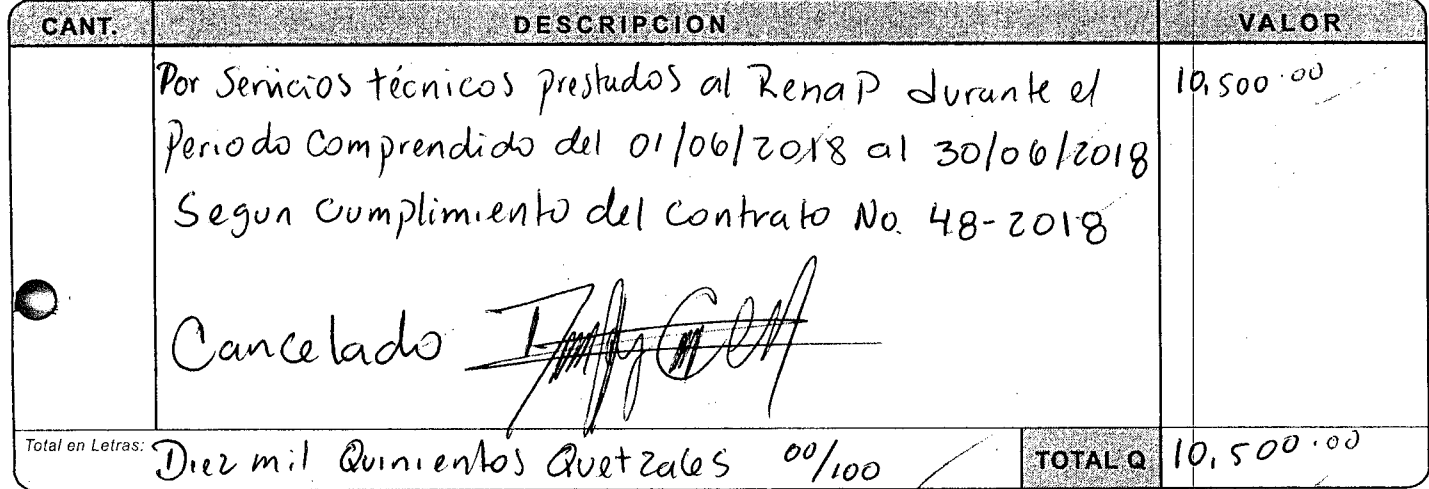 CANT. DESCRIPCION VALOR
Por Servicios técnicos prestados al Renap durante el 10,500.00
Periodo Comprendido del 01/06/2018 al 30/06/2018
Segun Cumplimiento del Contrato No. 48-2018
Cancelado
Total en Letras: Diez mil Quinientos Quetzales 00/100 TOTAL Q 10,500.00